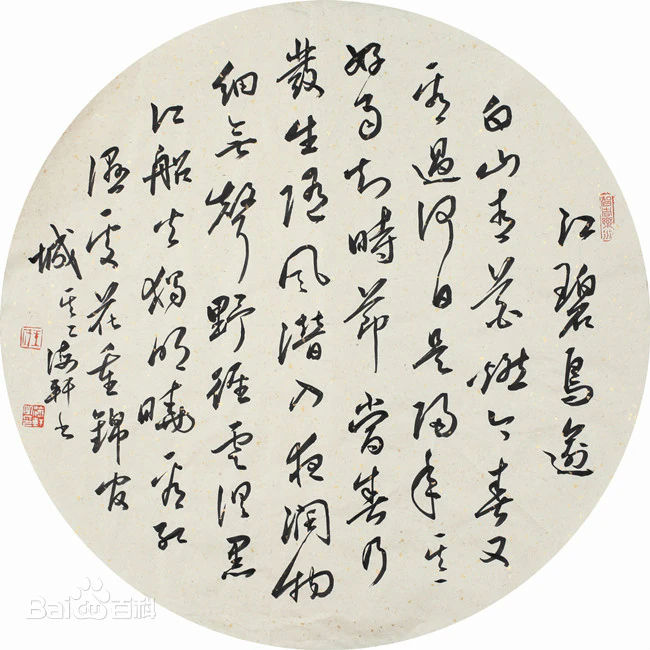 江碧鳥逾
白山青花燃今春又
看過何日是歸年 其一
好雨知時節當春乃
發生隨風潛入夜潤物
細無聲野徑雲俱黑
江船火獨明曉看紅
濕處花重錦官
城 其二 海軒書
Bai百科